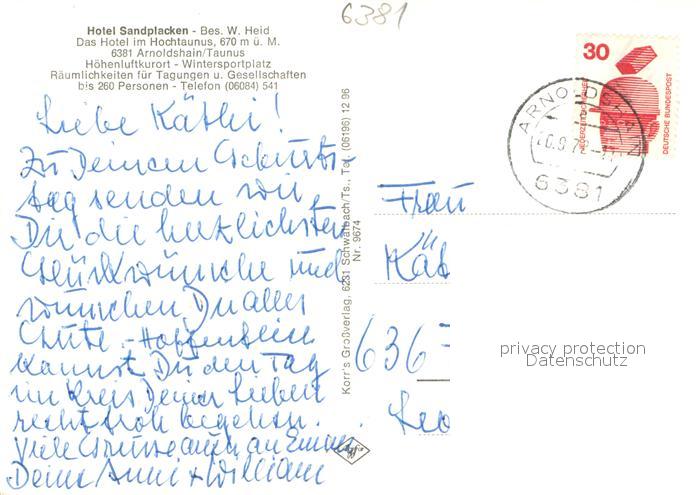 6381
Hotel Sandplacken - Bes. W. Heid
Das Hotel im Hochtaunus, 670 m ü. M.
6381 Arnoldshain/Taunus
Höhenluftkurort - Wintersportplatz
Räumlichkeiten für Tagungen u. Gesellschaften
bis 260 Personen - Telefon (06084) 541
Liebe Käthi!
Zu Deinem Geburts-
tag senden wir
Dir die herzlichsten
Glückwünsche und
wünschen Dir alles
Gute. - Hoffentlich
kannst Du den Tag
im Kreis Deiner Lieben
recht froh begehen.
Viele Grüsse auch an
Deine Anni + William
Korr's Großverlag, 6231 Schwalbach/Ts., Tel. (06196) 12 96
Nr. 9674
Agfa
30
JEDERZEIT SICHERHEIT
DEUTSCHE BUNDESPOST
ARNOLDSHAIN
6381
Frau
Kät
636
privacy protection
Datenschutz